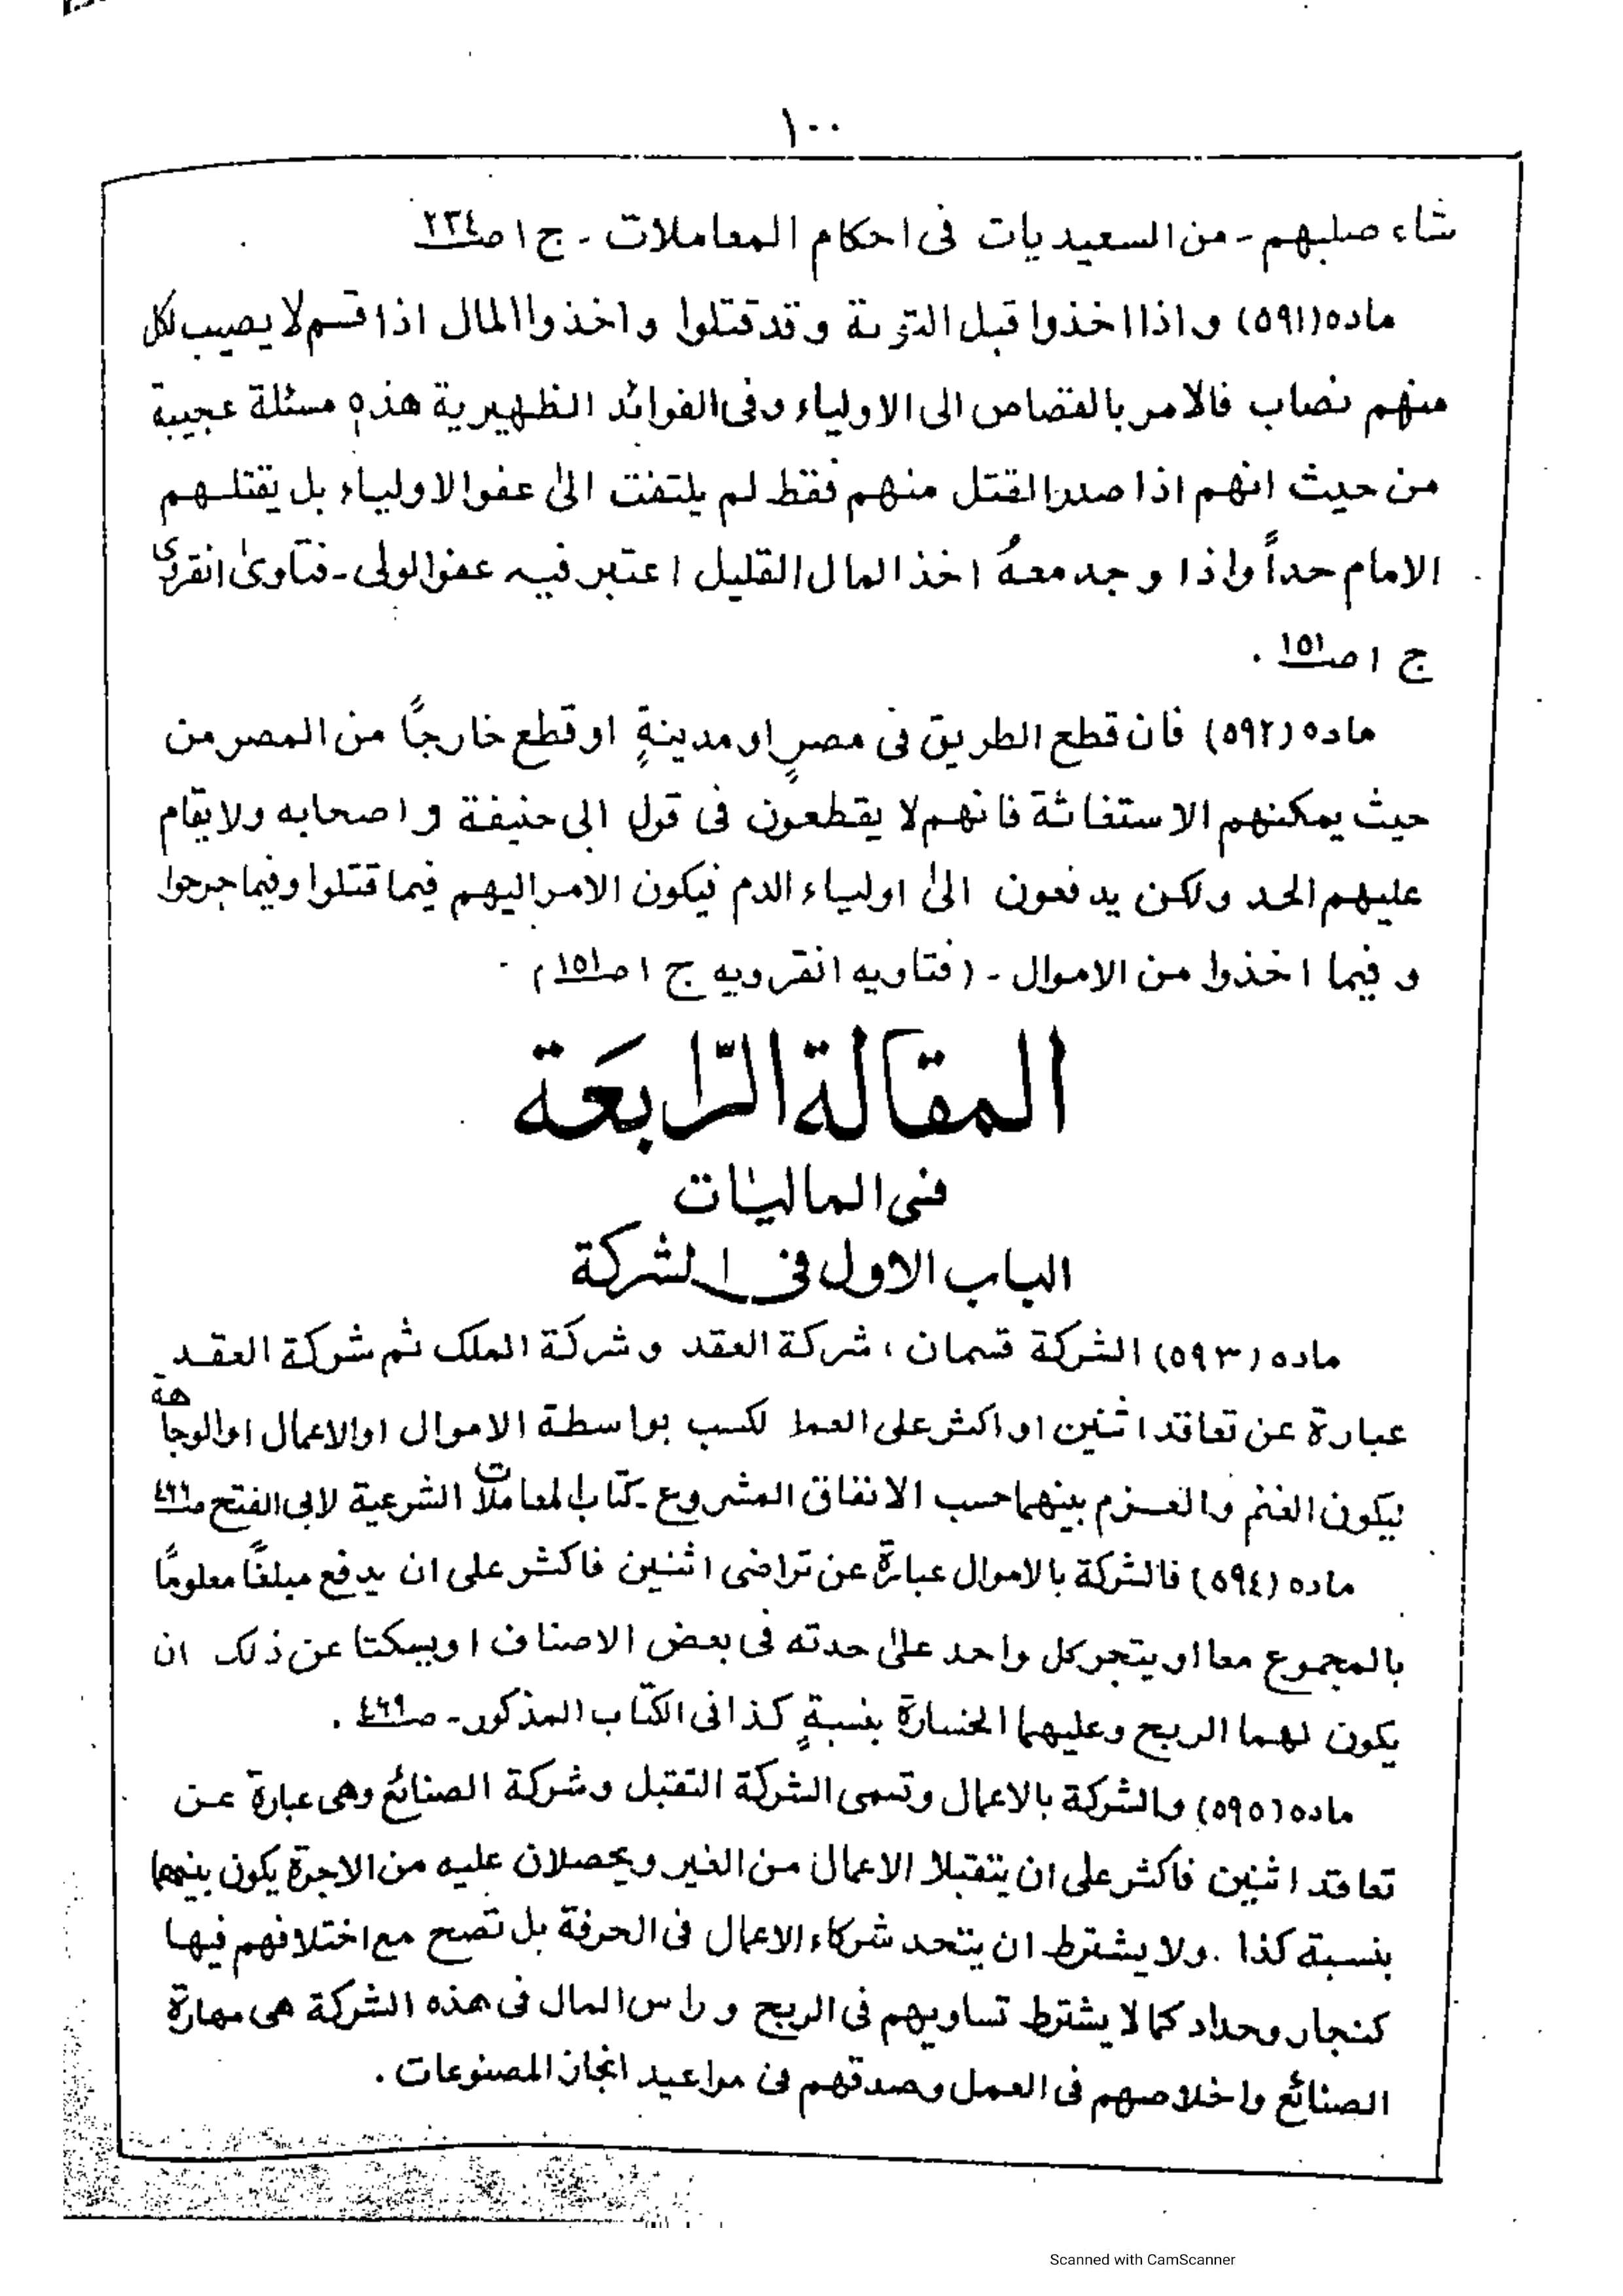 ١٠٠
شاء صلبهم - من السعيديات فى احكام المعاملات - ج ١ صـ ٢٣٤
ماده (٥٩١) واذا اخذوا قبل التوبة وقد قتلوا واخذوا المال اذا قسم لا يصيب لكل
منهم نصاب فالامر بالقصاص الى الاولياء وفى الفوائد الظهيرية هذه مسئلة عجيبة
من حيث انهم اذا صدر القتل منهم فقط لم يلتفت الىٰ عفو الاولياء بل يقتلهم
الامام حداً واذا وجد معهُ اخذ المال القليل اعتبر فيه عفو الولى - فتاوىٰ انقروى
ج ١ صـ ١٥١ .
ماده (٥٩٢) فان قطع الطريق فى مصرٍ او مدينةٍ او قطع خارجًا من المصر من
حيث يمكنهم الاستغاثة فانهم لا يقطعون فى قول ابى حنيفة واصحابه ولا يقام
عليهم الحد ولكن يدفعون الىٰ اولياء الدم فيكون الامر اليهم فيما قتلوا وفيما جرحوا
و فيما اخذوا من الاموال - (فتاويه انقرويه ج ١ صـ ١٥١)
المقالة الرّابعَة
فى الماليات
الباب الاول فى الشركة
ماده (٥٩٣) الشركة قسمان ، شركة العقد وشركة الملك ثم شركة العقد
عبارة عن تعاقد اثنين او اكثر على العمل لكسب بواسطة الاموال او الاعمال او الوجاهة
فيكون الغنم والغرم بينهما حسب الاتفاق المشروع - كتاب المعاملات الشرعية لابى الفتح صـ ٤٦٦
ماده (٥٩٤) فالشركة بالاموال عبارة عن تراضى اثنين فاكثر على ان يدفع مبلغًا معلومًا
بالمجموع معا او يتجر كل واحد علىٰ حدته فى بعض الاصناف او يسكتا عن ذلك ان
يكون لهما الربح وعليهما الخسارة بنسبةٍ كذا فى الكتاب المذكور - صـ ٤٦٩ .
ماده (٥٩٥) والشركة بالاعمال وتسمى الشركة التقبل وشركة الصنائع وهى عبارة عن
تعاقد اثنين فاكثر على ان يتقبلا الاعمال من الغير ويحصلان عليه من الاجرة يكون بينهما
بنسبة كذا . ولا يشترط ان يتحد شركاء الاعمال فى الحرفة بل تصح مع اختلافهم فيها
كنجار وحداد كما لا يشترط تساويهم فى الربح و راس المال فى هذه الشركة هى مهارة
الصنائع واخلاصهم فى العمل وصدقهم فى مواعيد انجاز المصنوعات .
Scanned with CamScanner